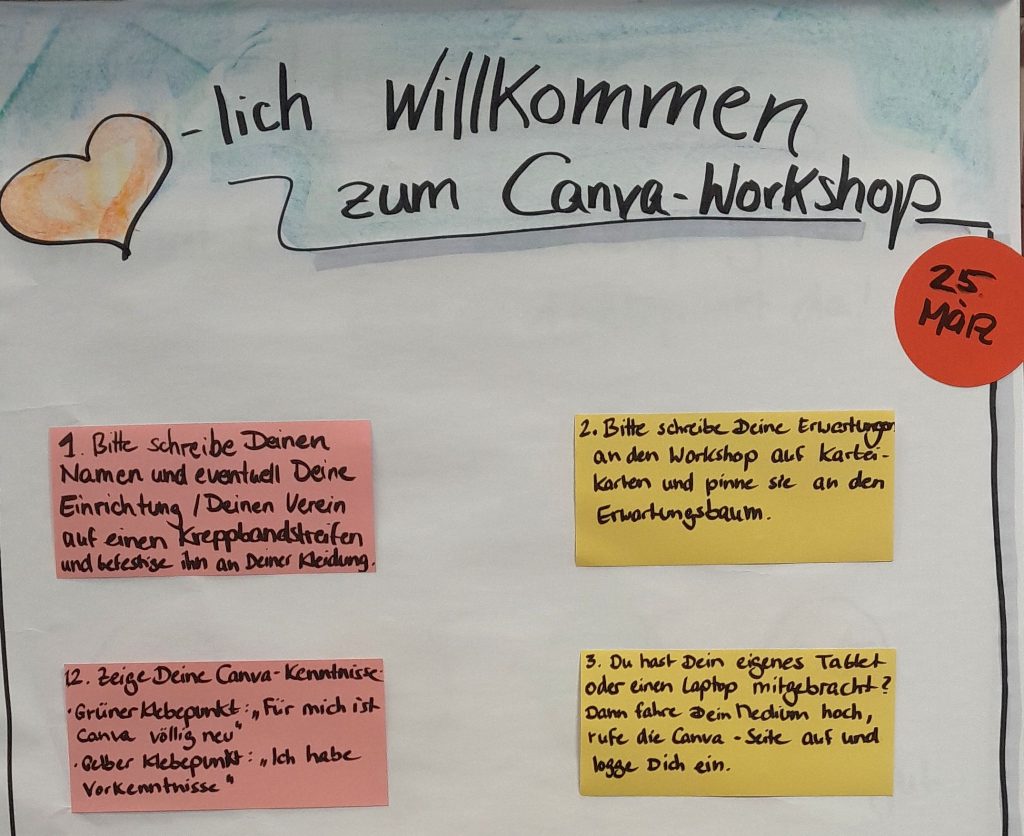 -lich Willkommen
zum Canva-Workshop
25.
MÄR
1. Bitte schreibe Deinen
Namen und eventuell Deine
Einrichtung / Deinen Verein
auf einen Kreppbandstreifen
und befestige ihn an Deiner Kleidung.
2. Bitte schreibe Deine Erwartungen
an den Workshop auf Kartei-
karten und pinne sie an den
Erwartungsbaum.
12. Zeige Deine Canva-Kenntnisse.
· Grüner Klebepunkt: „Für mich ist
Canva völlig neu"
· Gelber Klebepunkt: „Ich habe
Vorkenntnisse"
3. Du hast Dein eigenes Tablet
oder einen Laptop mitgebracht?
Dann fahre Dein Medium hoch,
rufe die Canva-Seite auf und
logge Dich ein.